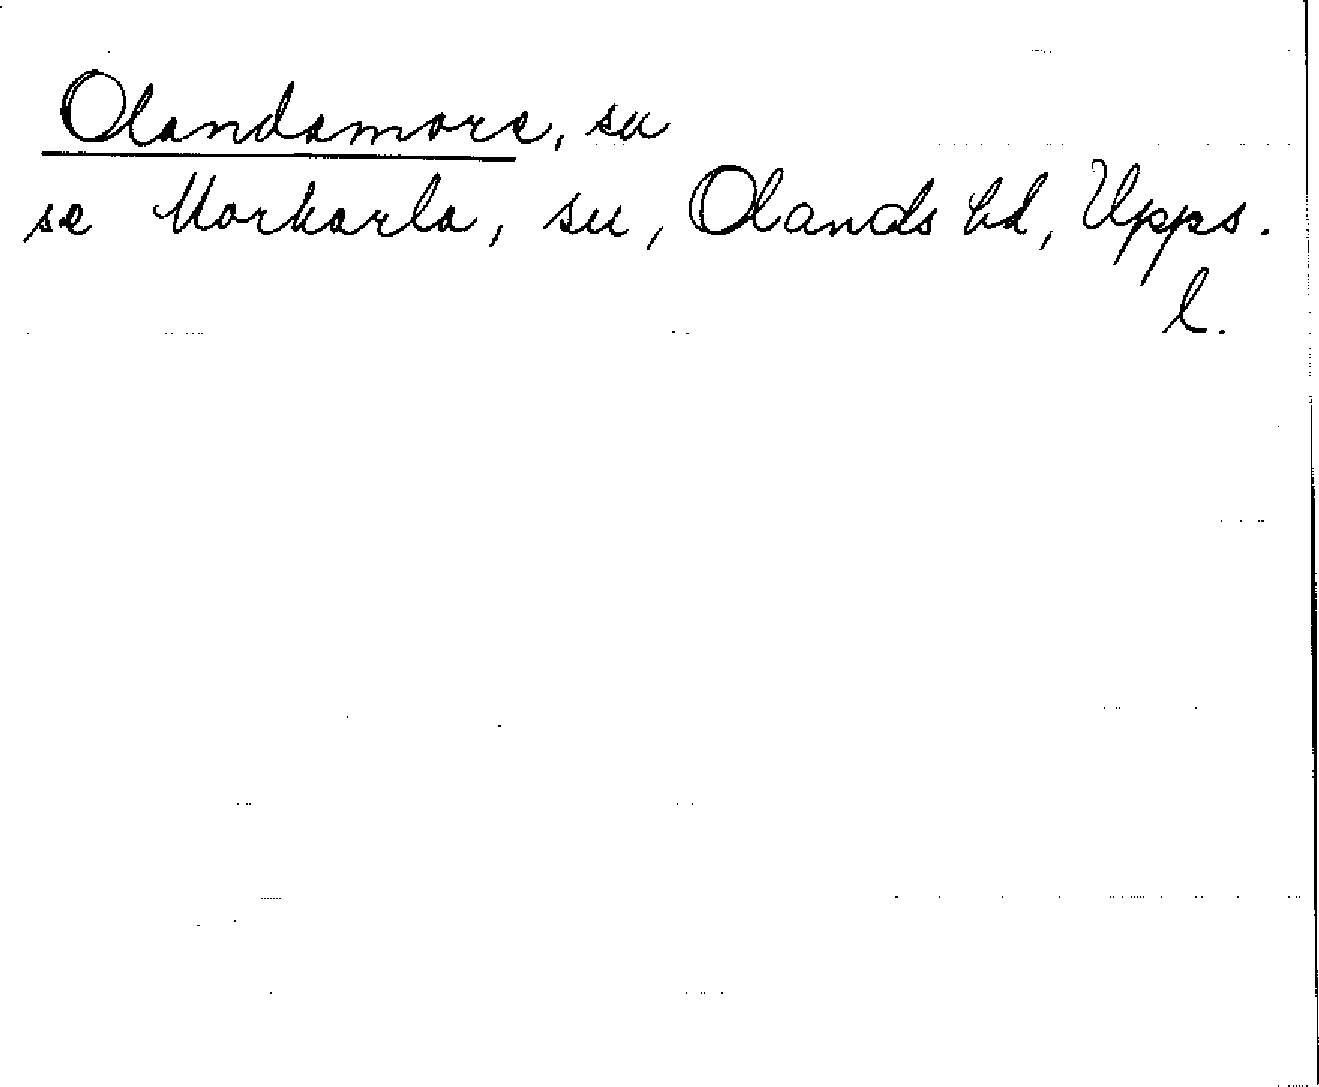 Olandamore, su
se Morkarla, su, Olands hd, Upps.
l.